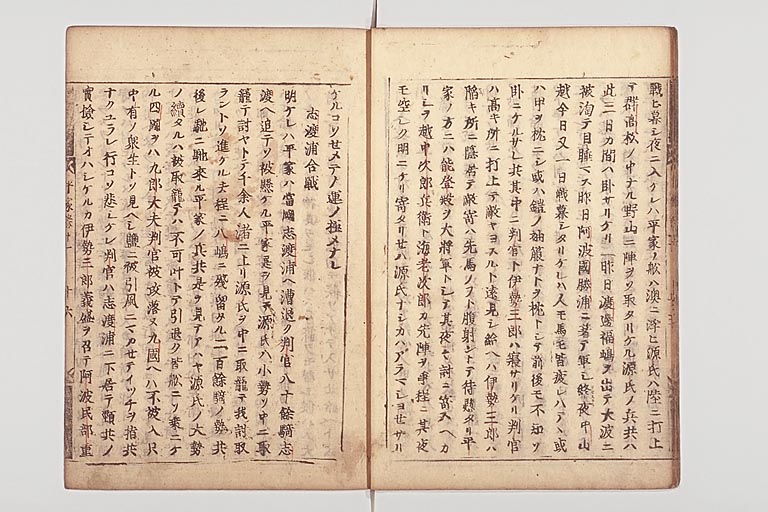 戦ヒ暮シ夜ニ入ケレハ平家ノ舩ハ澳ニ浮ヒ源氏ハ陸ニ打上
テ群高松ノ中ナル野山ニ陣ヲソ取タリケル源氏ノ兵共ハ
此三日カ間ハ臥サリケリ一昨日渡邊福嶋ヲ出テ大波ニ
被淘テ目睡マス昨日阿波國勝浦ニ着テ軍シ終夜中山
越今日又一日戦暮シタリケレハ人モ馬モ皆疲レハテヽ或
ハ甲ヲ枕ニシ或ハ鎧ノ袖箙ナトヲ枕トシテ前後モ不知ソ
臥ニケルサレ共其中ニ判官ト伊勢三郎ハ寝サリケリ判官
ハ高キ所ニ打上テ敵ヤヨスルト遠見シ給ヘハ伊勢三郎ハ
陥キ所ニ隠居テ敵寄ハ先馬ノフト腹射ントテ待懸タリ平
家ノ方ニハ能登殿ヲ大将軍トシテ其夜々討ニ寄ヘカ
リシヲ越中次郎兵衛ト海老次郎カ先陣ヲ争程ニ其夜
モ空シク明ニケリ寄タリセハ源氏ナシカハアラマシヨセサリ
ケルコソセメテノ運ノ極メナレ
志渡浦合戦
明ケレハ平家ハ當國志渡浦ヘ漕退ク判官八十餘騎志
渡ヘ追テソ被懸ケル平家是ヲ見テ源氏ハ小勢ソ中ニ取
籠テ討ヤトテ千余人渚ニ上リ源氏ヲ中ニ取籠テ我討取
ラントソ進ケル去程ニ八嶋ニ残留タル二百餘騎ノ勢共
後レ馳ニ馳来ル平家ノ兵共是ヲ見テアハヤ源氏ノ大勢
ノ續タルハ被取籠テハ不可叶トテ引退ク皆舩ニソ乗ニケ
ル四國ヲハ九郎大夫判官被攻落ヌ九國ヘハ不被入只
中有ノ衆生トソ見ヘシ塩ニ被引風ニマカセテイツチヲ指共
ナクユラレ行コソ悲シケレ判官ハ志渡浦ニ下居テ頸共ノ
實撿シテオハシケルカ伊勢三郎義盛ヲ召テ阿波民部重